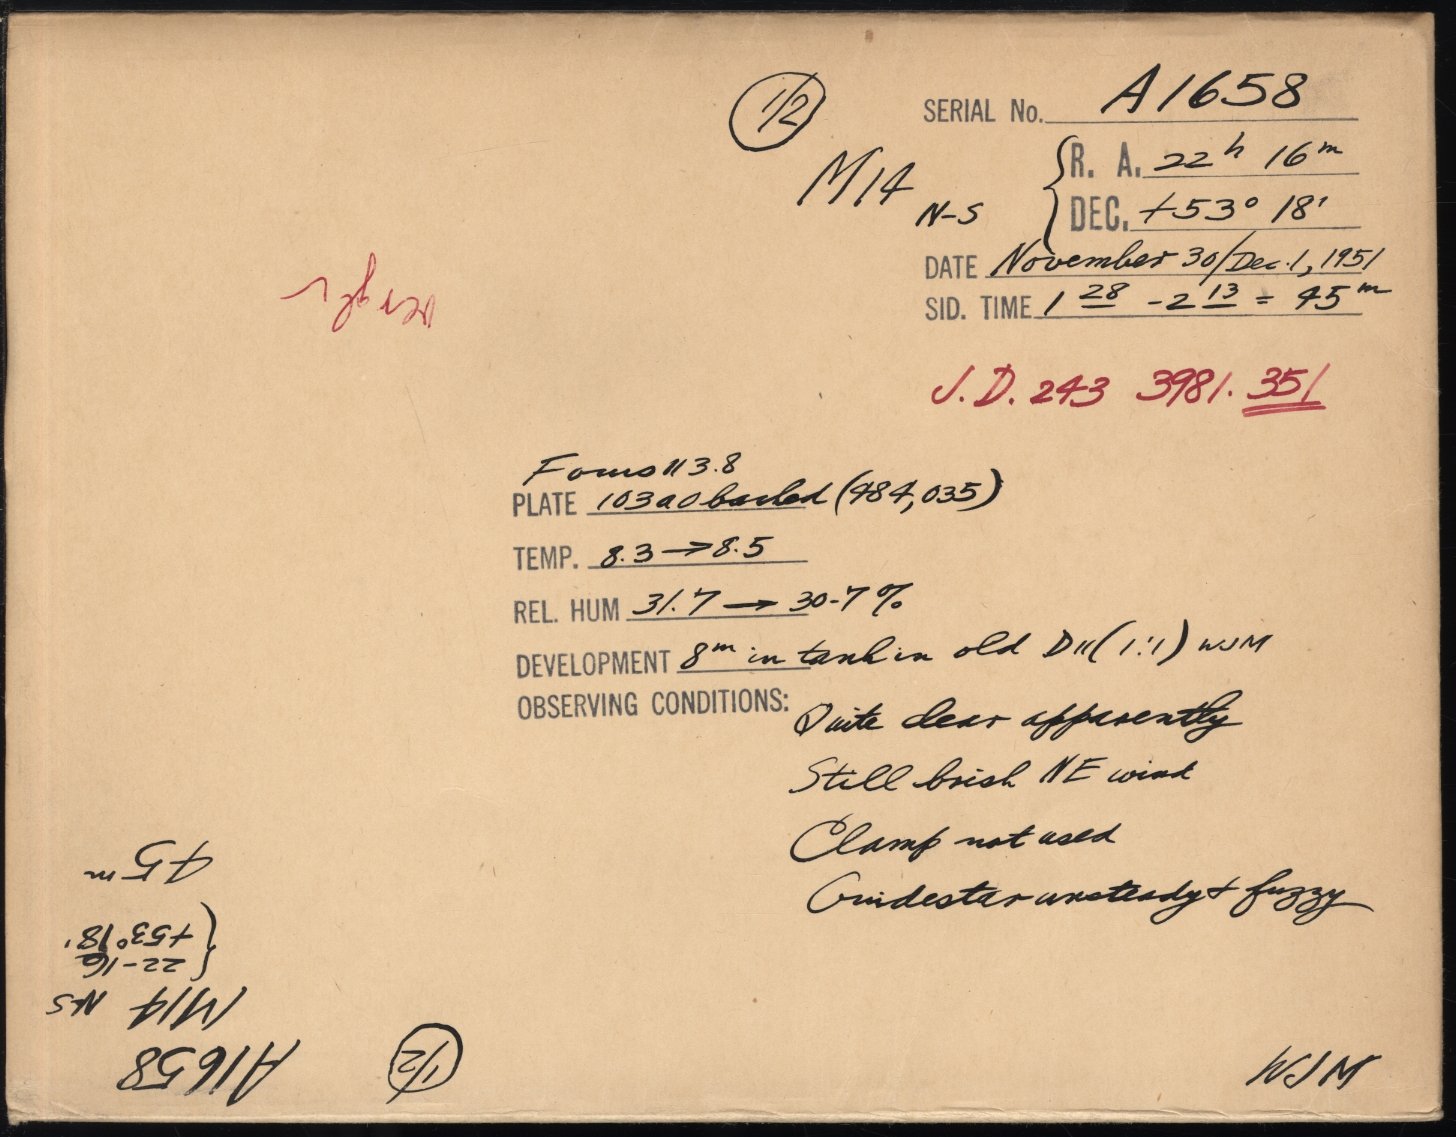 1/2
SERIAL No. A1658
M14 N-S
R. A. 22h 16m
DEC. +53° 18'
DATE November 30/Dec. 1, 1951
SID. TIME 1 28 - 2 13 = 45m
J.D. 243 3981.351
Focus 113.8
PLATE 103aO backed (484,035)
TEMP. 8.3 → 8.5
REL. HUM 31.7 → 30.7%
DEVELOPMENT 8m in tank in old D11 (1:1) WJM
OBSERVING CONDITIONS: Quite clear apparently
Still brisk NE wind
Clamp not used
Guidestar unsteady + fuzzy
WJM
A1658
1/2
M14 N-S
22-16
+53° 18'
45m